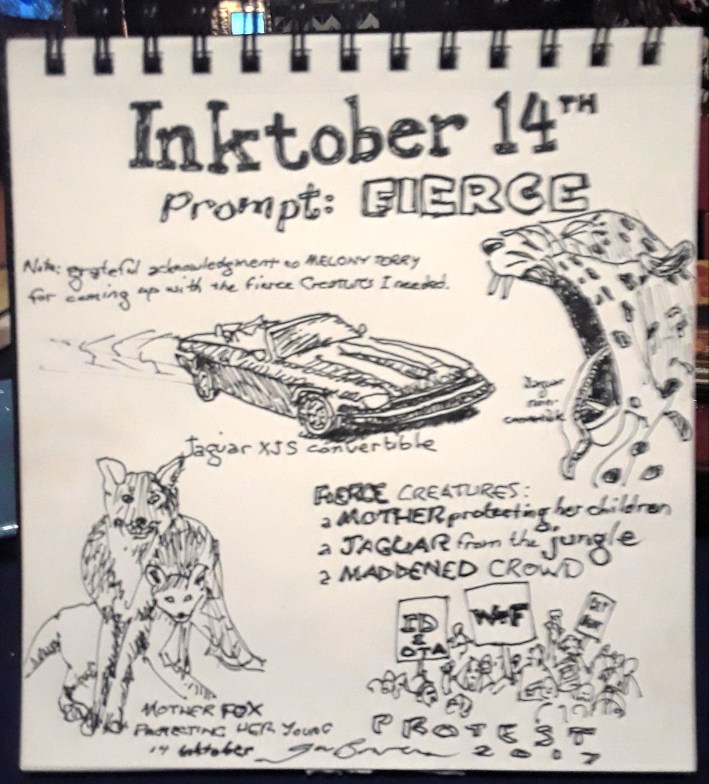 Inktober 14TH
Prompt: FIERCE
Note: grateful acknowledgment to MELONY TORRY
for coming up with the fierce Creatures I needed.
Jaguar
non-
convertible
Jaguar XJS convertible
FIERCE CREATURES:
a MOTHER protecting her children
a JAGUAR from the jungle
a MADDENED CROWD
ID
OTA
MOTHER FOX
PROTECTING HER YOUNG
14 Inktober
PROTEST
2017